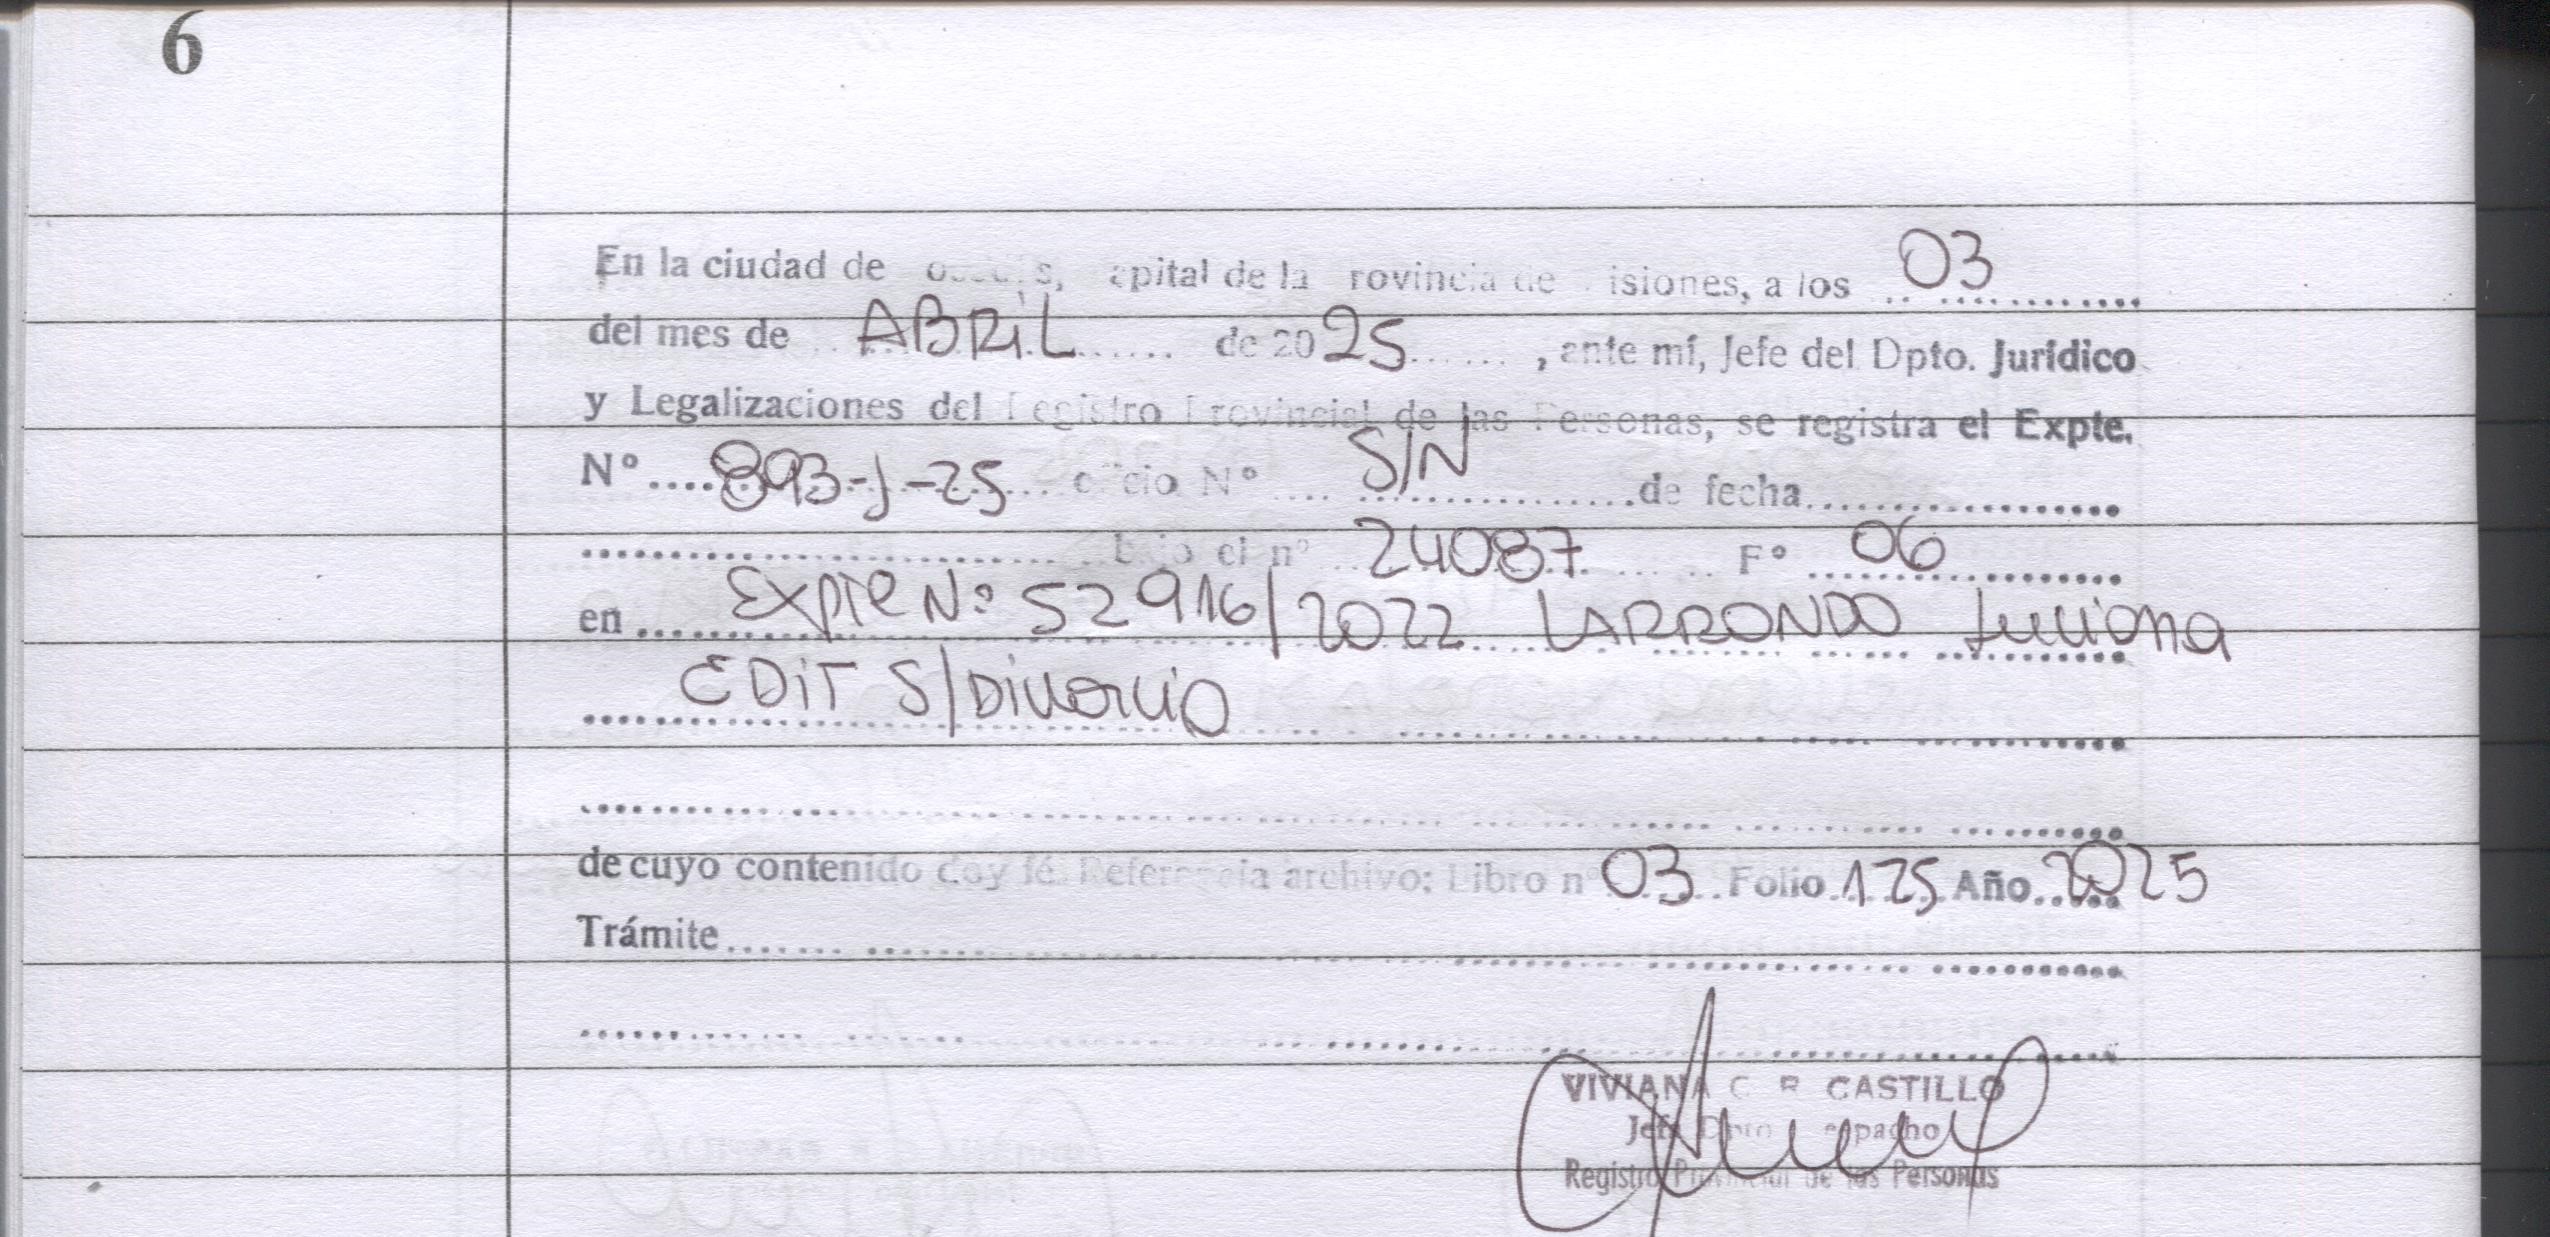 6
En la ciudad de Posadas, Capital de la Provincia de Misiones, a los 03
del mes de ABRiL de 2025, ante mí, Jefe del Dpto. Jurídico
y Legalizaciones del Registro Provincial de las Personas, se registra el Expte.
Nº 893-J-25 oficio Nº S/N de fecha
bajo el nº 24087 Fº 06
en Expte Nº: 52916/2022 LARRONDO Luciana
EDiT S/Divorcio
de cuyo contenido doy fé. Referencia archivo: Libro nº 03 Folio 125 Año 2025
Trámite
VIVIANA C. R. CASTILLO
Jefe Dpto. Despacho
Registro Provincial de las Personas